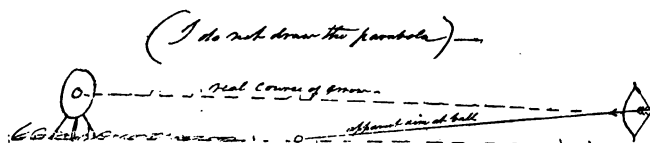 (I do not draw the parabola)—
real course of arrow
apparent aim at ball